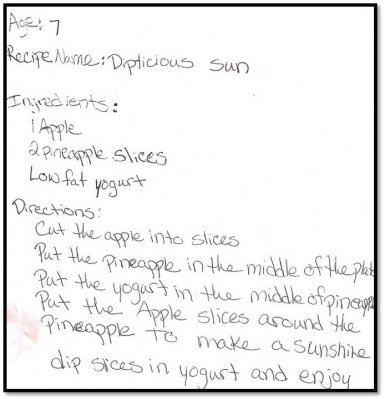 Age: 7
Recipe Name: Diplicious sun
Ingredients:
1 Apple
2 pineapple slices
Low fat yogurt
Directions:
Cut the apple into slices
Put the pineapple in the middle of the plate
Put the yogurt in the middle of pineapple
Put the Apple slices around the
Pineapple to make a sunshine
dip slices in yogurt and enjoy